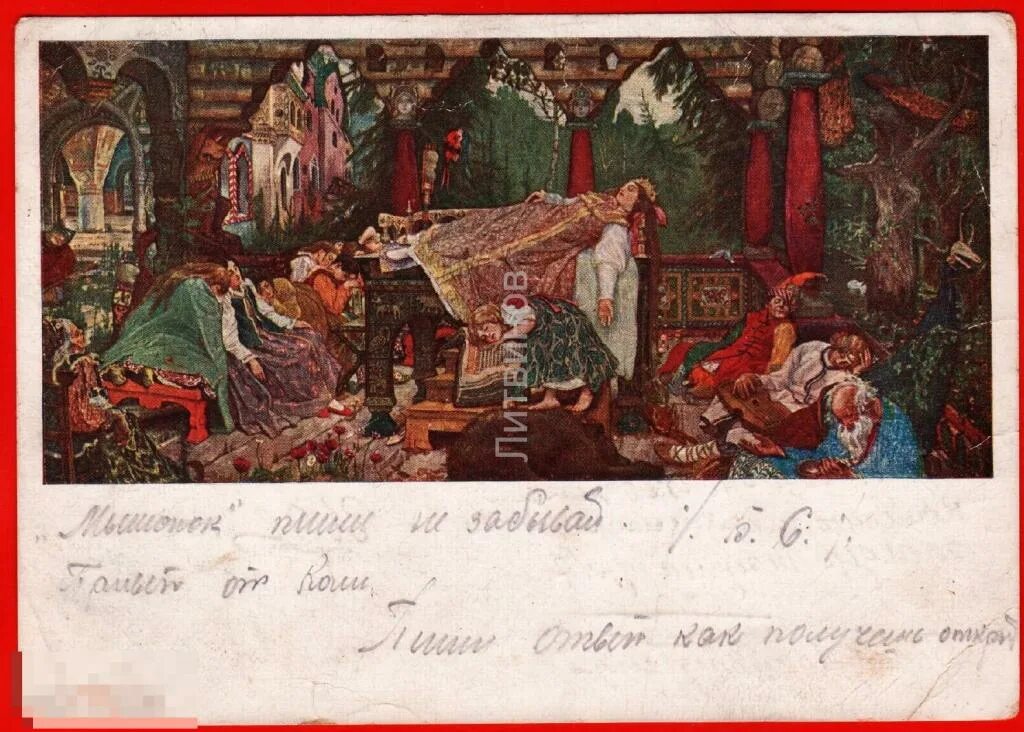 Литвинов
"Мышонок" пиши не забывай. Б. С.
Привет от Коли
Пиши ответ как получишь открыт